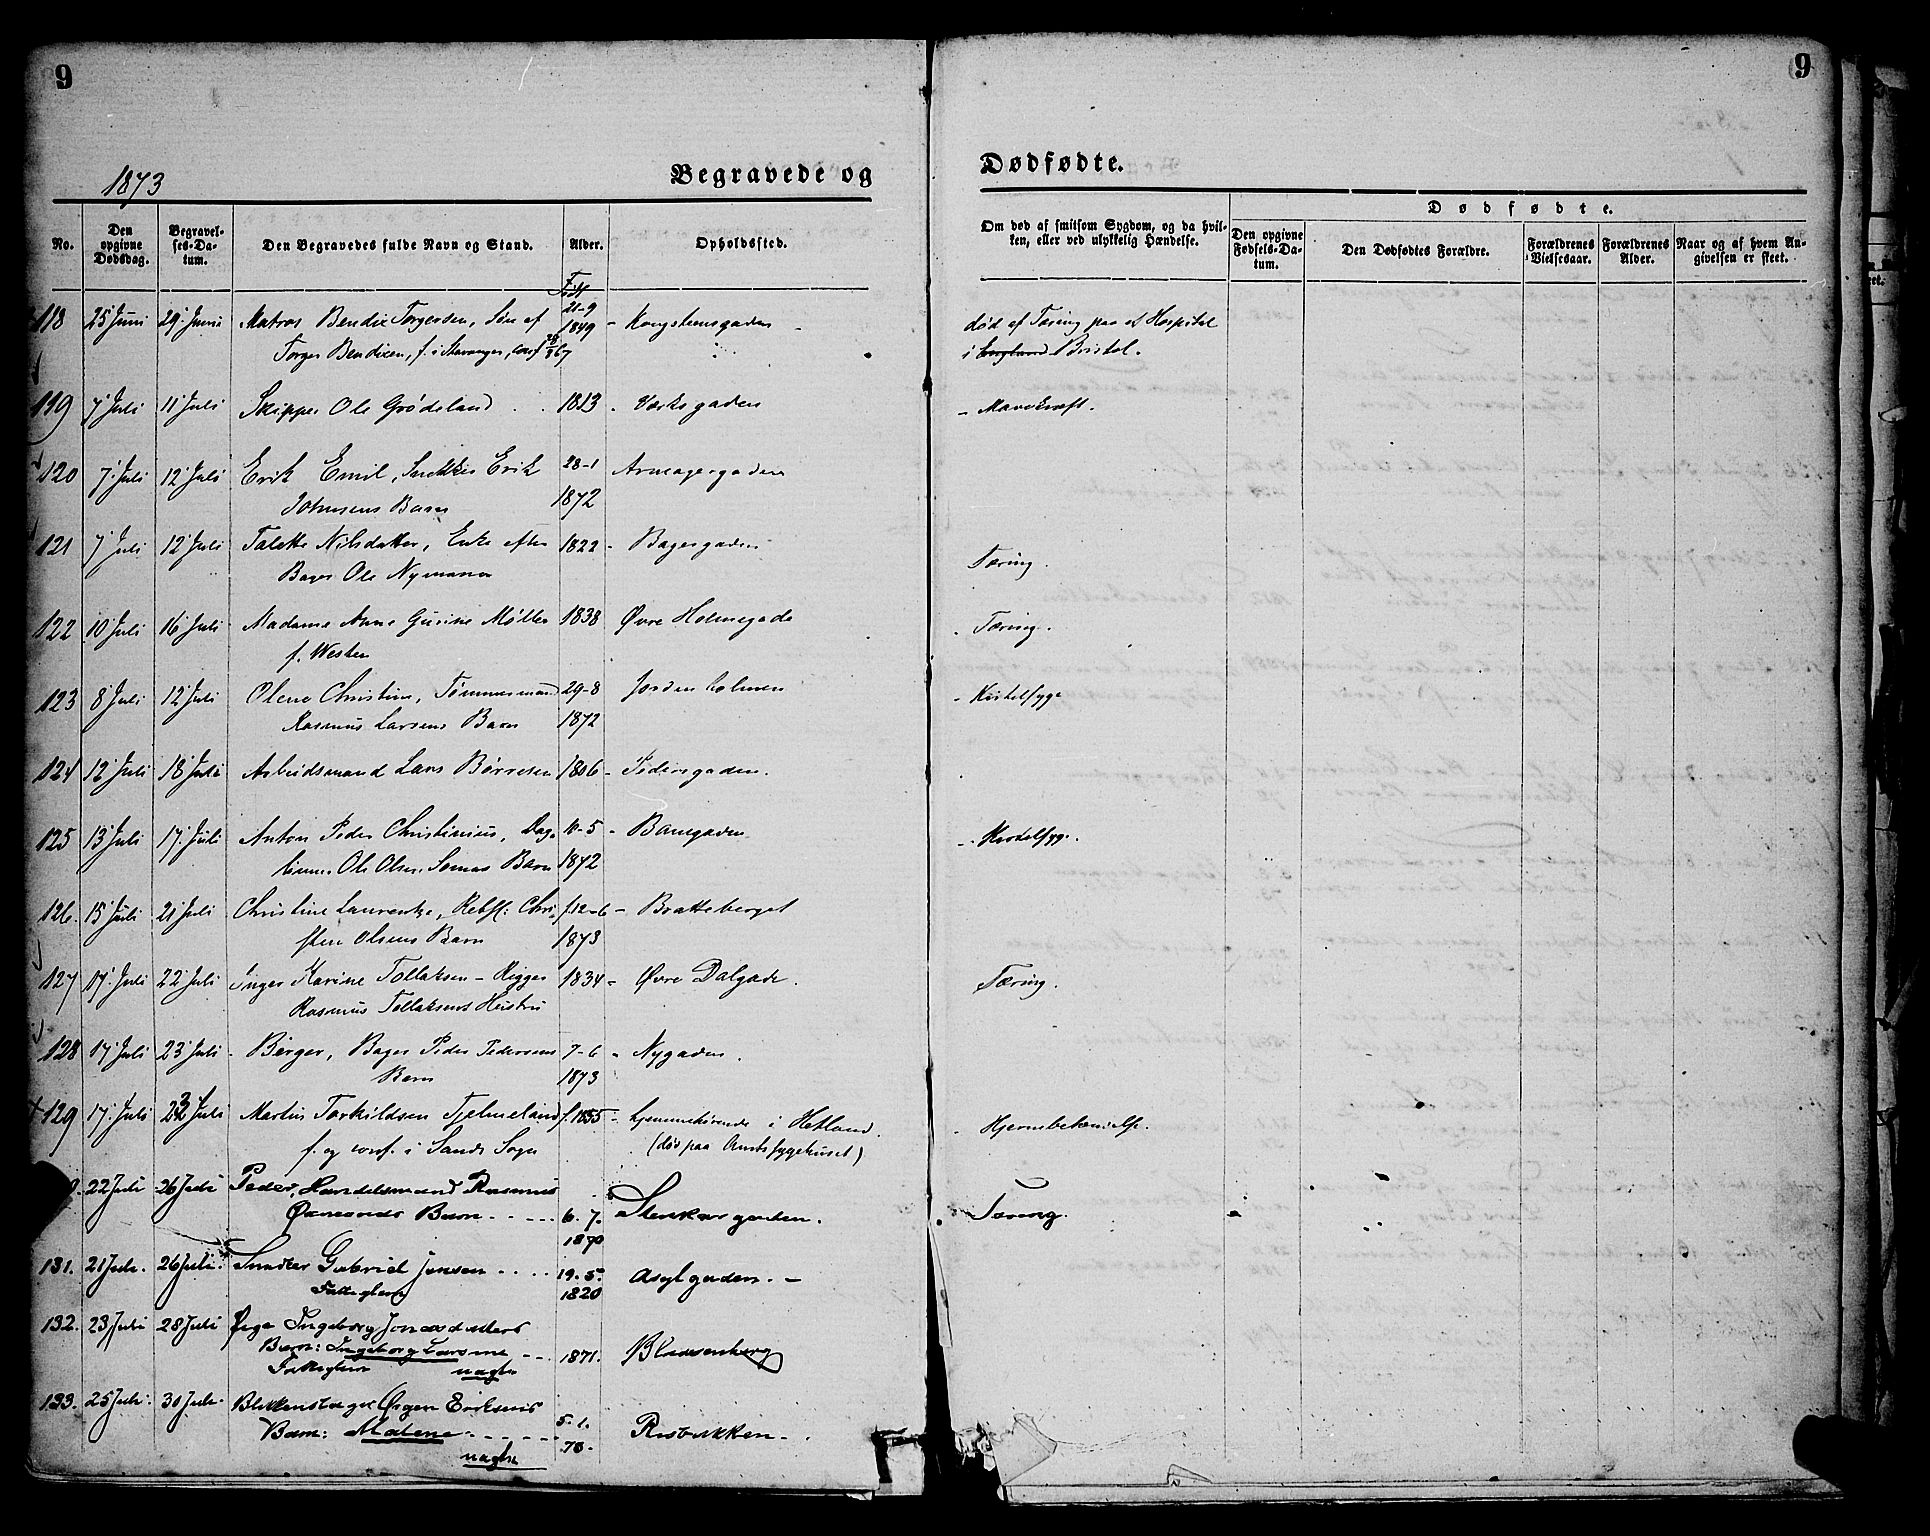 9
9
1873
Begravede og
Dødfødte.
No.
Den opgivne Dødsdag.
Begravelses-Datum.
Den Begravedes fulde Navn og Stand.
Alder.
Opholdssted.
Om død af smitsom Sygdom, og da hvilken, eller ved ulykkelig Hændelse.
Dødfødte.
Den opgivne Fødsels-Datum.
Den Dødfødtes Forældre.
Forældrenes Vielsesaar.
Forældrenes Alder.
Naar og af hvem Angivelsen er skeet.
Født
118 25 Juni 29 Juni Matros Bendix Torgersen, Søn af 21-9 1849 - Kongsteensgaden - død af Tæring paa et Hospital
Torger Bendixen, f. i Stavanger, conf. 67 i England Bristol.
119 7 Juli 11 Juli Skipper Ole Grødeland 1813 - Værksgaden - Mavekræft.
120 7 Juli 12 Juli Erik Emil, Snekker Erik 28-1 Armagergaden
Johnsens Barn 1872
121 7 Juli 12 Juli Talette Nilsdatter, Enke efter 1822 - Bagergaden Tæring.
Bager Ole Nymann
122 10 Juli 16 Juli Madame Anne Gurine Møller 1838 Øvre Holmegade - Tæring.
f. Wester
123 8 Juli 12 Juli Olene Christine, Tømmermand 29-8 Jorden holmen - Kirtelsyge
Rasmus Larsens Barn 1872
124 12 Juli 18 Juli Arbeidsmand Lars Børresen 1806 - Pedersgaden.
125 13 Juli 17 Juli Anton Peder Christinius, 10-5 - Banegaden - Kirtelsyge.
Ole Olsen Barn 1872
126. 15 Juli 21 Juli Christine Laurentze, Rebsl: Chri- f. 12-6 - Bratteberget
sten Olsens Barn 1873
127 17 Juli 22 Juli Inger Karine Tollaksen - Rigger 1834 - Øvre Dalgade. Tæring.
Rasmus Tollaksens Hustru
128 17 Juli 23 Juli - Berger, Bager Peder Pedersens 7-6 - Nygaden.
Barn 1873
129 17 Juli 23 Juli Martin Torkildsen Tjelmeland f. 1855 - hjemmehørende i Hetland. - Hjernebetændelse.
f. og conf. i Sands Sogn (død paa Amtssygehuset)
22 Juli 26 Juli Peder, Handelsmand Rasmus
Barn - - - - 6. 7. Stenkargaden. Tæring.
1870
131. 21 Juli. 26 Juli. Snedker Gabriel Jensen - - - - 19. 5. Asylgaden. -
Fattiglem 1820
132. 23 Juli 28 Juli Pige Ingeborg Jonasdatters
Barn: Ingeborg Larsine - - - 1871. Blaasenberg
Fattiglem uægte
133. 25 Juli. 30 Juli. Blikkenslager Ørgen Eriksens
Barn: Malene - - - - - - 5. 1. Rosbakken -
73 -
uægte